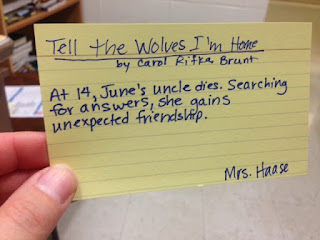 Tell the Wolves I'm Home
by Carol Rifka Brunt
At 14, June's uncle dies. Searching
for answers, she gains
unexpected friendship.
Mrs. Haase